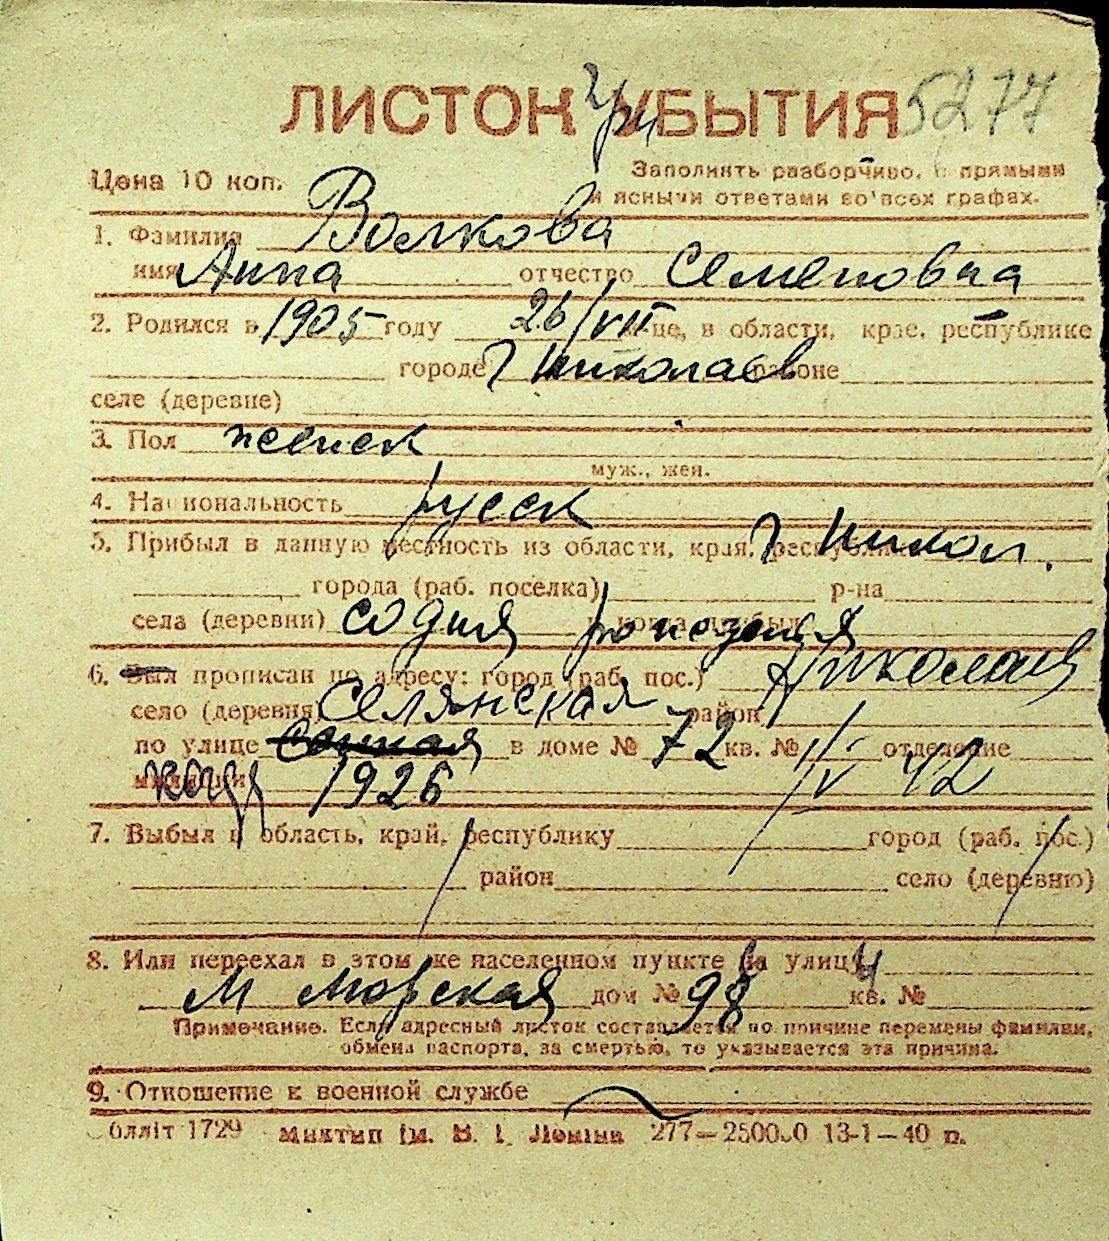 ЛИСТОК УБЫТИЯ 5277
При
Цена 10 коп.
Заполнять разборчиво, с прямыми
и ясными ответами во всех графах.
1. Фамилия Волкова
имя Анна отчество Семеновна
2. Родился в 1905 году 26/VII м-це, в области, крае, республике
городе г Николаев районе
селе (деревне)
3. Пол женск
муж., жен.
4. Национальность русск
5. Прибыл в данную местность из области, края, республики г Никол.
города (раб. поселка) р-на
села (деревни) со дня рождения
6. Был прописан по адресу: город (раб. пос.) Николаев
село (деревня) Селянская район
по улице Сенная в доме № 72 кв. № отделение
милиции 1926 /IV 42
7. Выбыл в область, край, республику город (раб. пос.)
район село (деревню)
8. Или переехал в этом же населенном пункте на улицу
М Морская дом № 98 кв. №
Примечание. Если адресный листок составляется по причине перемены фамилии,
обмена паспорта, за смертью, то указывается эта причина.
9. Отношение к военной службе
Облліт 1729 Миктип ім. В. І. Леніна 277—250000 13-1—40 п.